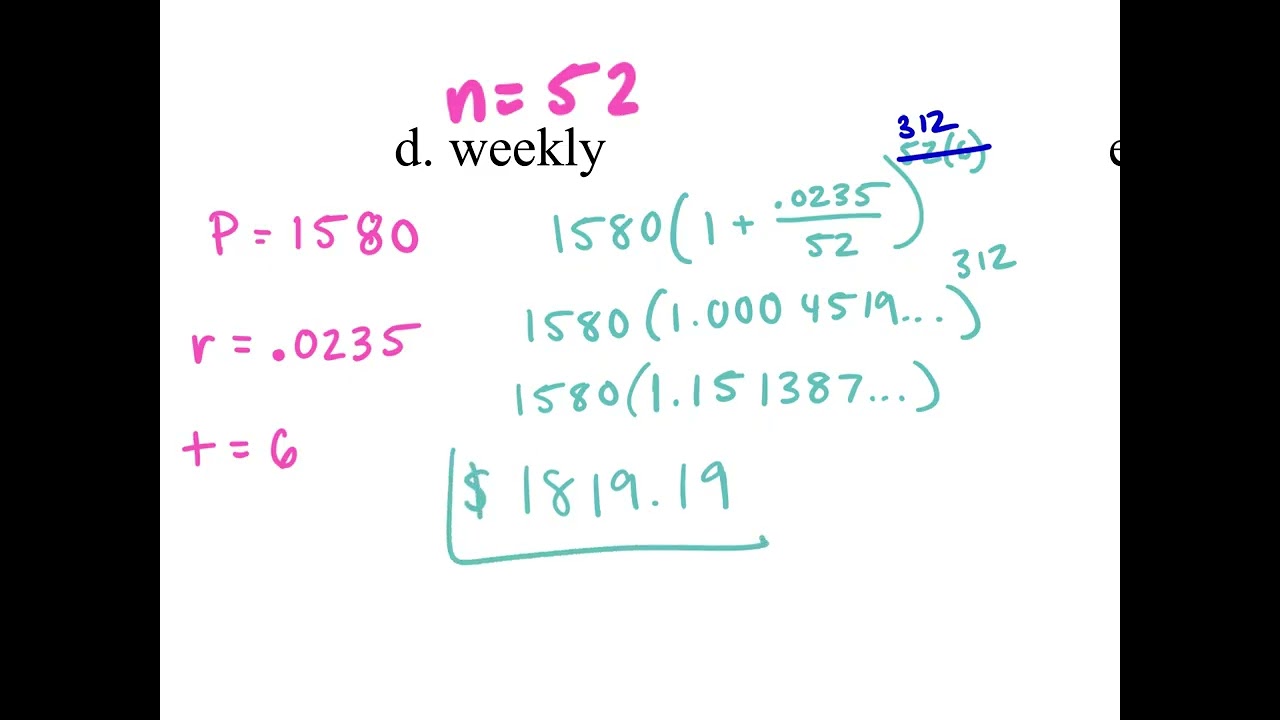 n = 52
d. weekly
P = 1580
r = .0235
t = 6
1580(1 + .0235/52)^312 52(6)
1580(1.0004519...)^312
1580(1.151387...)
$1819.19